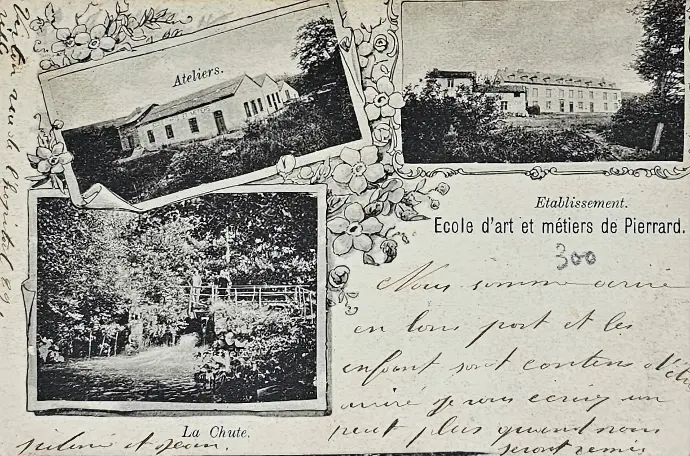 Ateliers.
Etablissement.
Ecole d'art et métiers de Pierrard.
300
La Chute.
Nous somme arrivé
en bons port et les
enfant sont contens d'être
arrivé je vous ecrirez un
peut plus quand nous
seront remis
et Jean.
rue de l'hopital 89